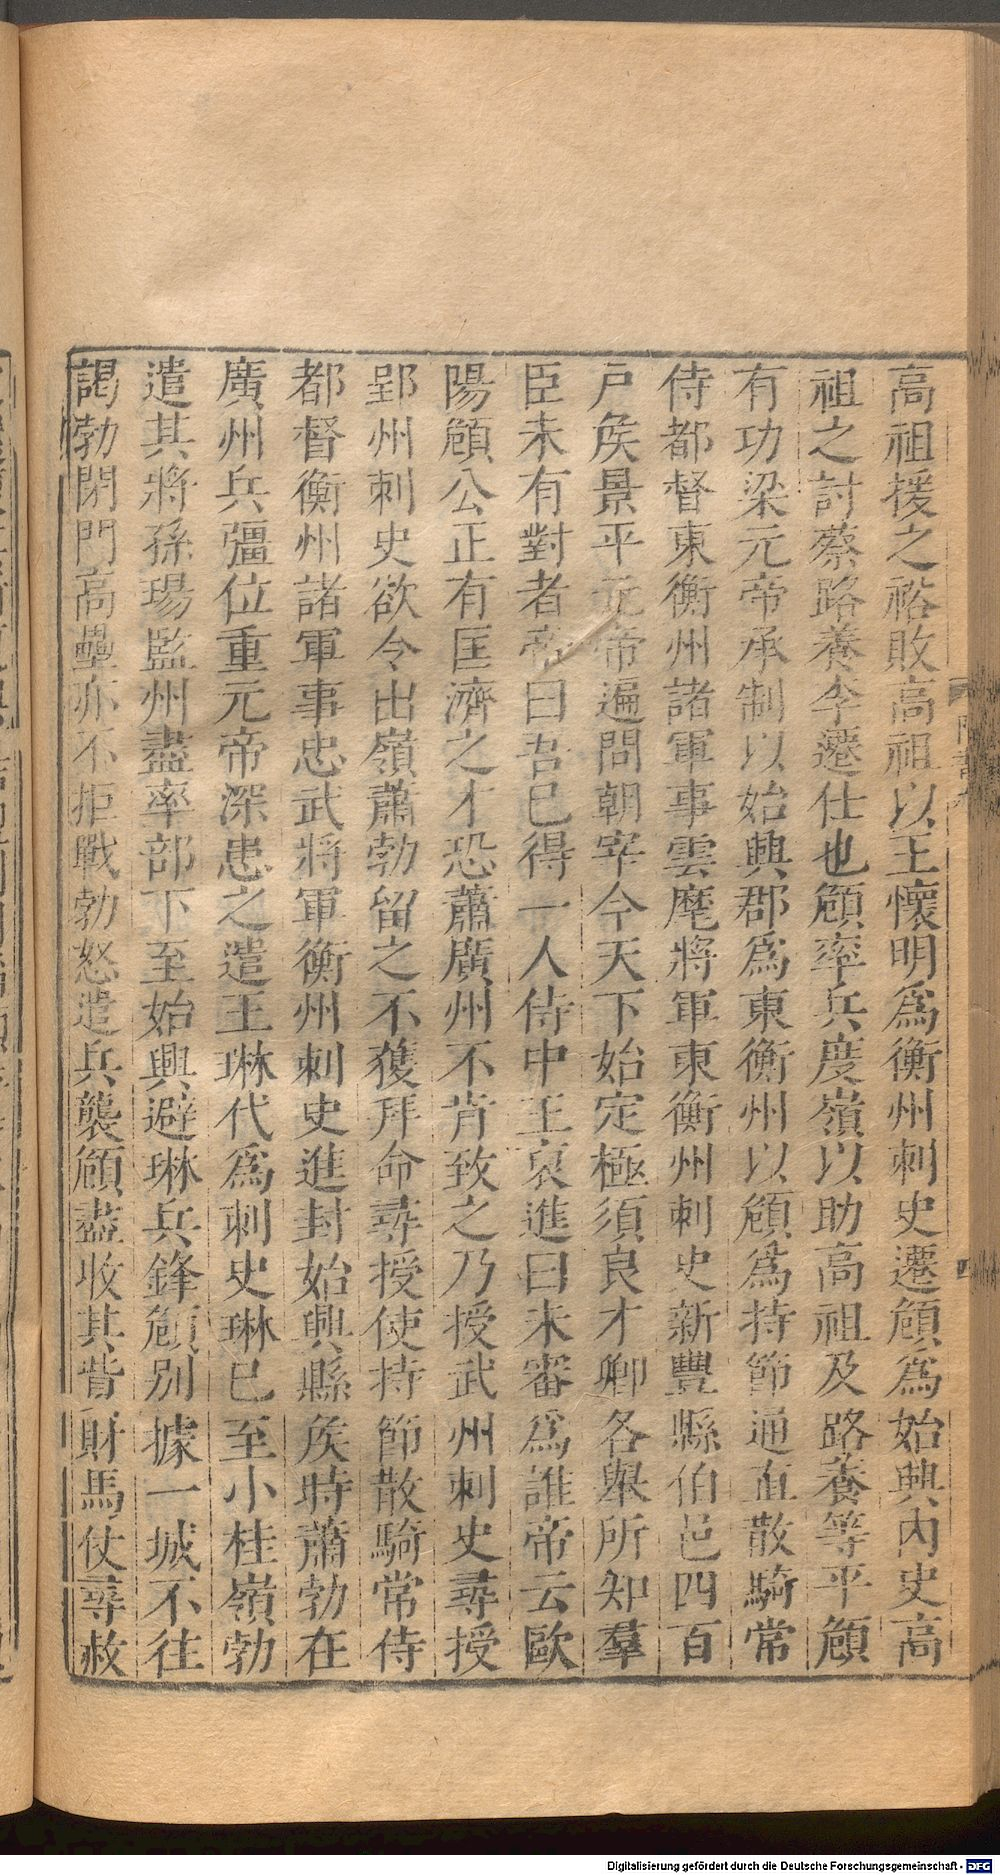 高祖援之裕敗高祖以王懷明爲衡州刺史遷頠爲始興內史高
祖之討蔡路養李遷仕也頠率兵度嶺以助高祖及路養等平頠
有功梁元帝承制以始興郡爲東衡州以頠爲持節通直散騎常
侍都督東衡州諸軍事雲麾將軍東衡州刺史新豐縣伯邑四百
戸矦景平元帝遍問朝宰今天下始定極須良才卿各舉所知羣
臣未有對者帝曰吾已得一人侍中王裒進曰未審爲誰帝云歐
陽頠公正有匡濟之才恐蕭廣州不肯致之乃授武州刺史尋授
郢州刺史欲令出嶺蕭勃留之不獲拜命尋授使持節散騎常侍
都督衡州諸軍事忠武將軍衡州刺史進封始興縣矦時蕭勃在
廣州兵彊位重元帝深患之遣王琳代爲刺史琳已至小桂嶺勃
遣其將孫瑒監州盡率部下至始興避琳兵鋒頠別據一城不往
謁勃閉門高壘亦不拒戰勃怒遣兵襲頠盡收其貲財馬仗尋赦
四
Digitalisierung gefördert durch die Deutsche Forschungsgemeinschaft - DFG